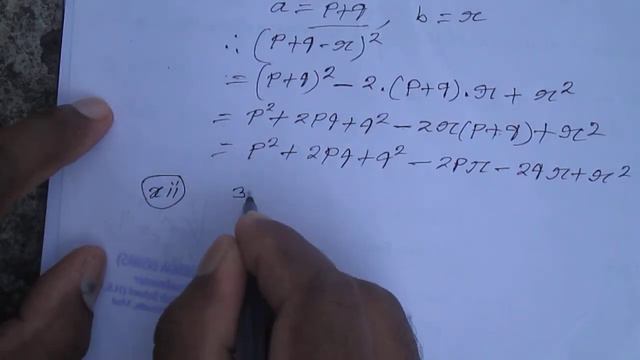 a = p+q , b = x
∴ (p+q-x)²
= (p+q)² - 2.(p+q).x + x²
= p² + 2pq + q² - 2x(p+q) + x²
= p² + 2pq + q² - 2px - 2qx + x²
xii 3